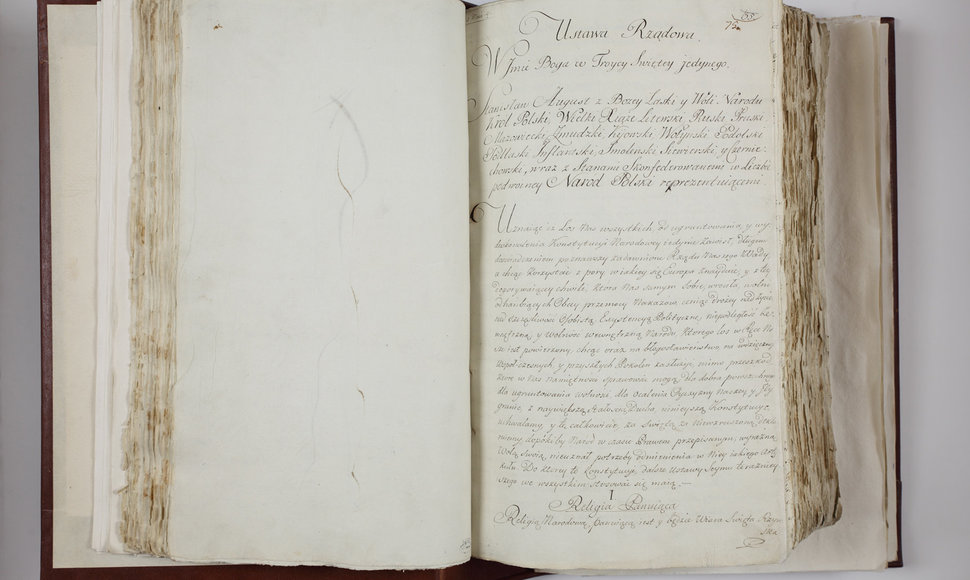 Ustawa Rządowa.
W Jmie Boga w Troycy Swiętey jedynego.
Stanisław August z Bożey Łaski y Woli Narodu
Krol Polski, Wielki Xiąże Litewski, Ruski Pruski
Mazowiecki, Zmudzki, Kijowski Wołyński Podolski
Podlaski Inflantski, Smolenski Siewierski, y Czernie-
chowski, wraz z Stanami Skonfederowanemi w liczbie
podwoyney Narod Polski reprezentuiącemi
Uznaiąc iż Los Nas wszystkich, od ugruntowania, y wy-
doskonalenia Konstytucyi Narodowey iedynie zawisł, długim
doświadczeniem poznawszy zadawnione Rządu Naszego Wady,
a chcąc korzystać z pory w iakiey się Europa znayduie, y z tey
dogorywaiącey chwili, która Nas samym Sobie wrociła, wolni
od hańbiących Obcey przemocy Nakazow, ceniąc drożey nad życie,
nad szczęśliwość Osobistą, Exystencyą Polityczną, niepodległość ze-
wnętrzną, y wolność wewnętrzną Narodu, ktorego los w Ręce Na-
sze iest powierzony, chcąc oraz na błogosławieństwo, na wdzięczność
współczesnych, y przyszłych Pokoleń zasłużyć, mimo przeszkod
ktore w Nas Namiętności sprawować mogą, dla dobra powszechnego
dla ugruntowania wolności, dla Ocalenia Oyczyzny Naszey, y Jey
granic, z naywiększą stałością Ducha, ninieyszą Konstytucyę
uchwalamy, y tę całkowicie, za Swiętą, za Niewzruszoną, dekla-
ruiemy dopokiby Narod w czasie Prawem przepisanym, wyraźną
Wolą Swoią, nieuznał potrzeby odmienienia w Niey iakiego Arty-
kułu. Do ktorey to Konstytucyi, dalsze Ustawy Seymu teraznieyy-
szego we wszystkim stosować się maią. —
I
Religia Panuiąca
Religią Narodową Panuiącą iest y będzie Wiara Swięta Rzym-
ska